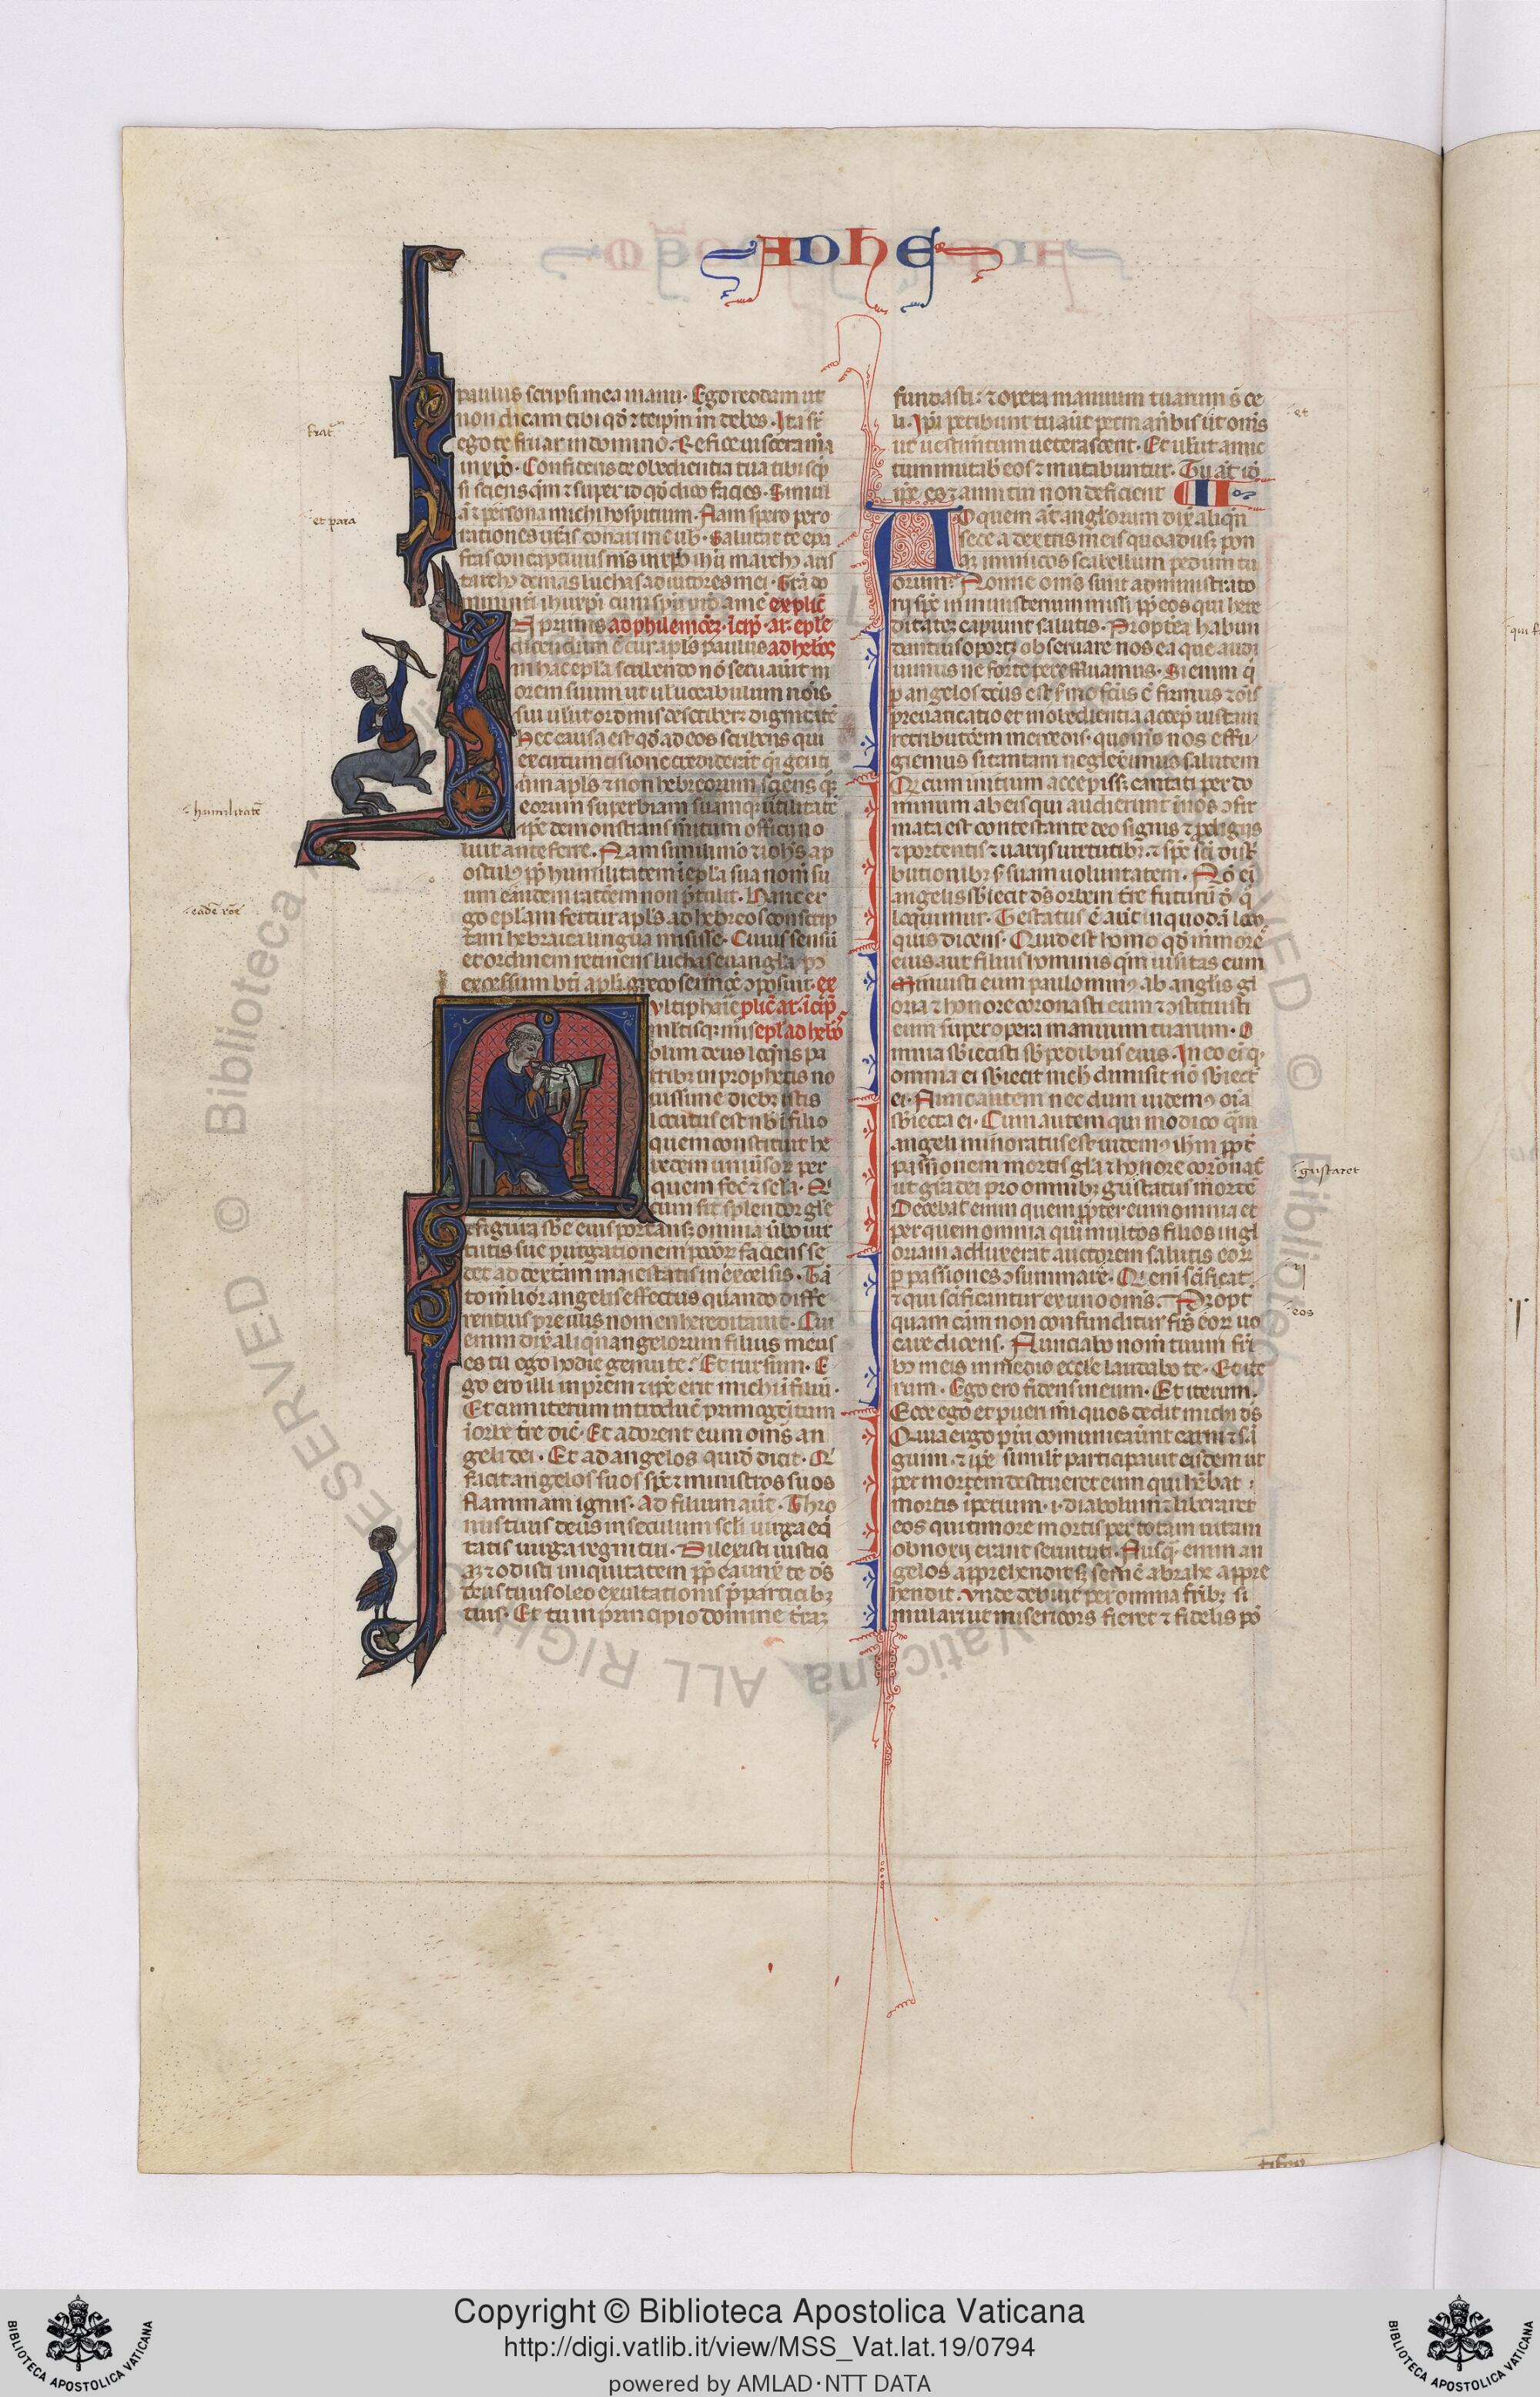 AD HE
paulus scripsi mea manu. Ego reddam ut
non dicam tibi qđ ⁊ teipm̄ m̄ debes. Ita fr̄
ego te fruar in domino. Refice uiscera m̄a
in xp̄o. Confidens de obedientia tua tibi scp̄
si sciens qm̄ ⁊ super id qđ dico facies. Simul
michi hospitium. Nam spero per o
rationes ur̄as donari me uob̄. Salutat te epa
fras concaptiuus m̄s in xp̄o ih̄u march9 aris
tarch9 demas luchas adiutores mei. Gr̄a do
mini nr̄i ih̄u xp̄i cum sp̄u ur̄o am̄ explic̄
In primis ad philemonē. Icip̄. ar. ep̄le
dicendum ē cur apl̄s paulus ad hebr̄os
in hac ep̄la scribendo nō seruauit m
orem suum ut uel uocabulum nōis
sui uel ordinis describer& dignitatē
Hec causa est qđ ad eos scribens qui
ex circumcisione crediderāt q̄si genti
um apl̄s ⁊ non hebreorum sciens q̄z
eorum superbiam suamq; humilitatē
ip̄e demonstrans m̄itum officij no
luit anteferre. Nam simili mō ⁊ ioh̄s ap
ostolus pp̄ humilitatem ī ep̄la sua nom̄ su
um eandem ratōem non p̄tulit. Hanc er
go ep̄lam fertur apl̄s ad hebreos conscrip
tam hebraica lingua misisse. Cuius sensū
et ordinem retinens luchas euangl̄a p9
excessum bt̄i apl̄i greco sermōe ɔposuit. ex
Multiphariē plic̄ ar. īcip̄
multisq; mis ep̄l ad hebr̄o
olim deus loq̄ns pa
trib; in prophetis no
uissime dieb; istis
locutus est nob̄ ī filio
quem constituit he
redem uniūsoꝝ per
quem fec̄ ⁊ sc̄la. Q
cum sit splendor gl̄e
⁊ figura sb̄e eius portansq; omnia ūbo uir
tutis sue purgationem pccōꝝ faciens se
det ad dextram maiestatis in excelsis. Tā
to m̄lior angelis effectus quanto diffe
rentius pre illis nomen hereditauit. Cui
enim dix̄ aliqn̄ angelorum filius meus
es tu ego hodie genui te. Et rursum. E
go ero illi in pr̄em ⁊ ip̄e erit michi ī filiū.
Et cum iterum introduc̄ primogenitum
ī orbē t̄re dic̄. Et adorent eum om̄s an
geli dei. Et ad angelos quid̄ dicit. Q
facit angelos suos sp̄c ⁊ ministros suos
flammam ignis. Ad filium aūt. Thro
nus tuus deus in seculum sc̄li uirga eq̄
tatis uirga regni tui. Dilexisti iustici
am ⁊ odisti iniquitatem pp̄ea unx̄ te d̄s
deus tuus oleo exultationis p̄ participib;
tuis. Et tu in principio domine t̄ram
fundasti: ⁊ opera manuum tuarum s̄ ce
li. Ip̄i peribunt tu aūt permanebis ⁊ om̄s
ut uestimtum ueterascent. Et uelut amic
tum mutab̄ eos ⁊ mutabuntur. Tu aūt id̄
ip̄e es ⁊ anni tui non deficient II
Ad quem aūt anglorum dix̄ aliqn̄
sede a dextris meis quoadusq; pon
am inimicos scabellum pedum tu
orum. Nonne om̄s sunt administrato
rij sp̄c in ministerium missi pp̄ eos qui here
ditatem capiunt salutis. Propterea habun
dantius oport& obseruare nos ea que audi
uimus ne forte pereffluamus. Si enim q̄
p angelos deus est sermo fc̄us ē firmus ⁊ ois
preuaricatio et inobedientia accep̄ iustam
retributōem mercedis. quom̄o nos effu
giemus si tantam neglex̄imus salutem
Q̄ cum initium accepiss& enarrari per do
minum ab eis qui audierunt ī nos ɔfir
mata est contestante deo signis ⁊ prodigijs
⁊ portentis ⁊ uarijs uirtutib;. ⁊ sp̄c sc̄i distr
butionib; s̄m suam uoluntatem. Nō ei
angelis sb̄iecit d̄s orbem t̄re futurū d̄ q̄
loquimur. Testatus ē aūt in quodā loco
quis dicens. Quid est homo qđ m̄mor ē
eius aut filius hominis qm̄ uisitas eum
Minuisti eum paulo min9 ab angl̄is gl
oria ⁊ honore coronasti eum ⁊ ɔstituisti
eum super opera manuum tuarum. O
mnia sb̄iecisti sb̄ pedibus eius. In eo ei q,
omnia ei sb̄iecit nich̄ dimisit nō sb̄iect̄
ei. Nunc autem nec dum uidem9 oīa
sb̄iecta ei. Cum autem qui modico qm̄
angeli minoratus est uidem9 ih̄m ppt̄
passionem mortis gl̄a ⁊ honore coronat̄
ut gr̄a dei pro omnib; gustatus mortē
Decebat enim quem ppter eum omnia et
per quem omnia qui multos filios in gl
oriam adduxerat auctorem salutis eoꝝ
p passiones ɔsummare. Q̄ eni sc̄ificat
⁊ qui sc̄ificantur ex uno om̄s. Propt
quam cām non confunditur fr̄s eoꝝ uo
care dicens. Nunciabo nom̄ tuum fr̄i
b; meis in medio eccl̄e laudabo te. Et ite
rum. Ego ero fidens in eum. Et iterum.
Ecce ego et pueri m̄i quos dedit michi d̄s
Quia ergo pu̅i comunicaūnt carni ⁊ sā
guini ⁊ ip̄e similr̄ participauit eisdem ut
per mortem destrueret eum qui hēbat
mortis īperium .i. diabolum ⁊ liberaret
eos qui timore mortis per totam uitam
obnoxij erant seruituti. Nusq̄ enim an
gelos apprehendit s; semē abrahe appre
hendit. Vnde debuit per omnia fr̄ib; si
mulari ut misericors fieret ⁊ fidelis po̅
et para
humilitatē
eadē rōe
et
gustaret
eos
Copyright © Biblioteca Apostolica Vaticana
http://digi.vatlib.it/view/MSS_Vat.lat.19/0794
powered by AMLAD·NTT DATA
BIBLIOTECA APOSTOLICA VATICANA
BIBLIOTECA APOSTOLICA VATICANA